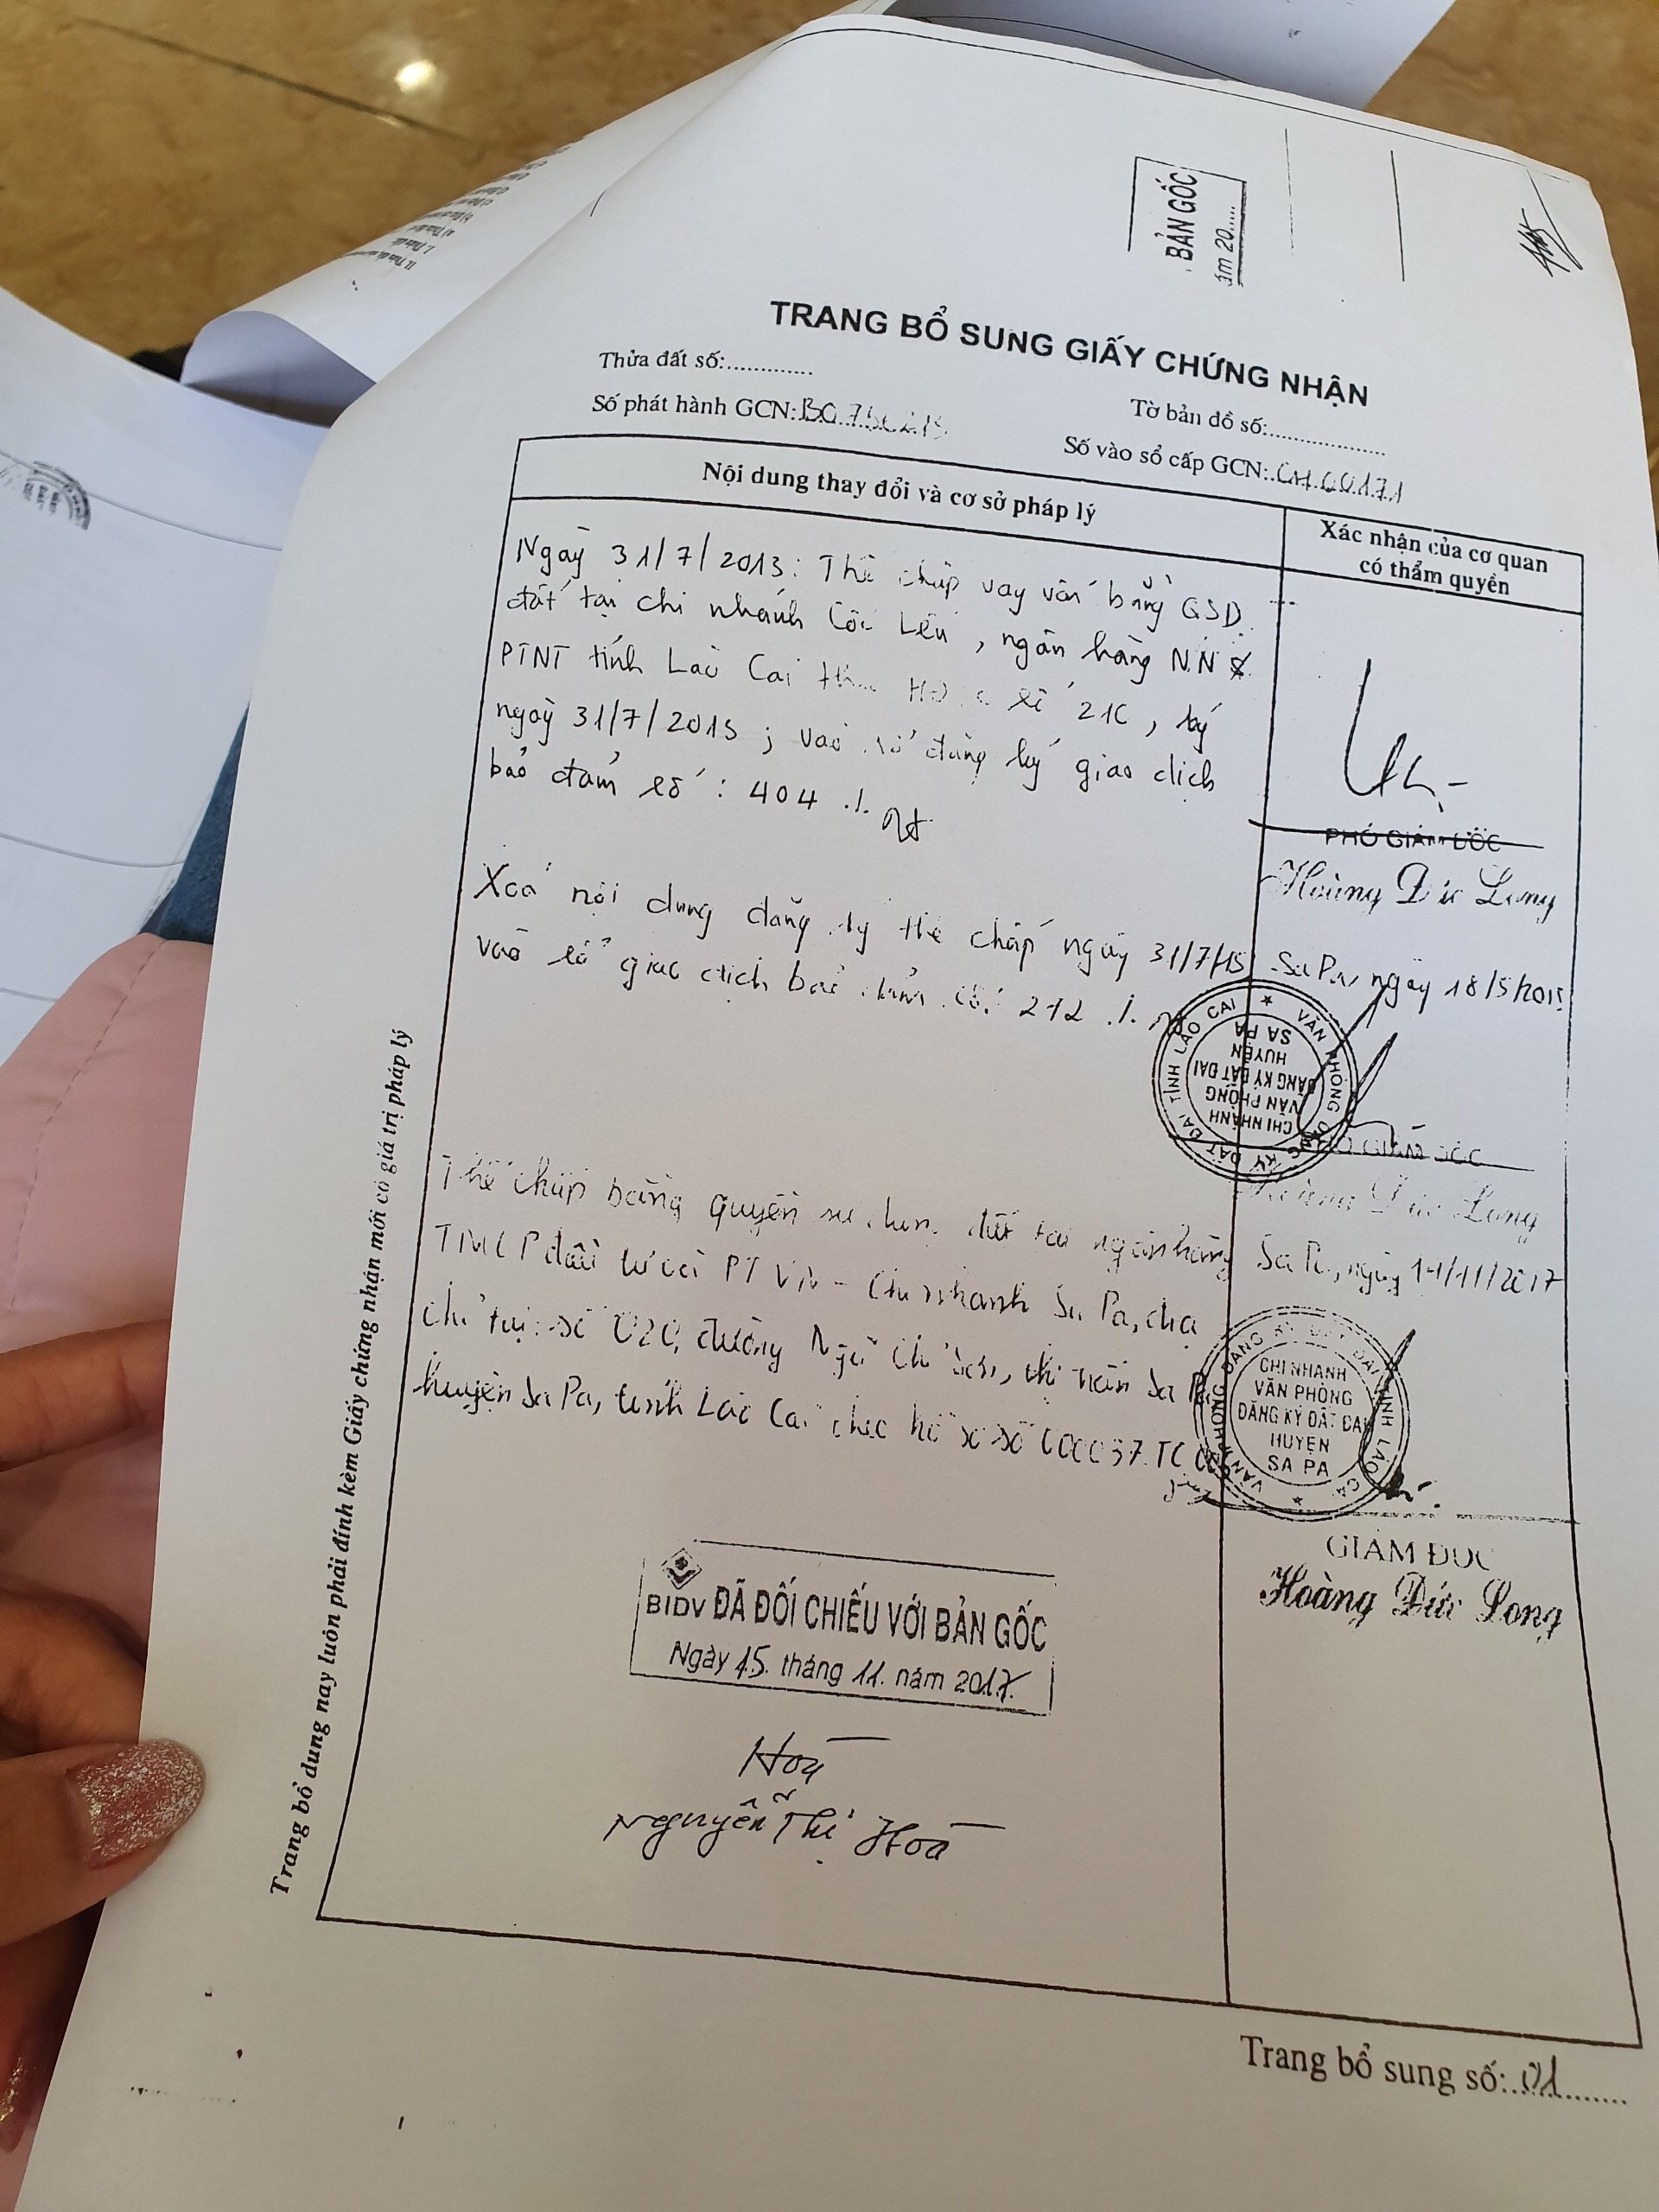 BẢN GỐC
ăm 20.....
TRANG BỔ SUNG GIẤY CHỨNG NHẬN
Thửa đất số:.............
Tờ bản đồ số:..................
Số phát hành GCN:
Số vào sổ cấp GCN: CH 00171
Nội dung thay đổi và cơ sở pháp lý
Xác nhận của cơ quan
có thẩm quyền
Ngày 31/7/2013: Thế chấp vay vốn bằng GSD
đất tại chi nhánh Cốc Lếu, ngân hàng NN &
PTNT tỉnh Lào Cai số 21C, ký
ngày 31/7/2013; vào sổ đăng ký giao dịch
bảo đảm số: 404 ./.
PHÓ GIÁM ĐỐC
Hoàng Đức Long
Xoá nội dung đăng ký thế chấp ngày 31/7/13
vào sổ giao dịch bảo đảm số: 212 ./.
Sa Pa, ngày 18/5/2015
VĂN PHÒNG ĐĂNG KÝ ĐẤT ĐAI TỈNH LÀO CAI
CHI NHÁNH
VĂN PHÒNG
ĐĂNG KÝ ĐẤT ĐAI
HUYỆN
SA PA
PHÓ GIÁM ĐỐC
Hoàng Đức Long
Thế chấp bằng quyền sử dụng đất tại ngân hàng
TMCP đầu tư và PT VN - Chi nhánh Sa Pa, địa
chỉ tại: số 020, đường Ngũ Chỉ Sơn, thị trấn Sa Pa
huyện Sa Pa, tỉnh Lào Cai theo hồ sơ số 000037.TC
Sa Pa, ngày 14/11/2017
VĂN PHÒNG ĐĂNG KÝ ĐẤT ĐAI TỈNH LÀO CAI
CHI NHÁNH
VĂN PHÒNG
ĐĂNG KÝ ĐẤT ĐAI
HUYỆN
SA PA
GIÁM ĐỐC
Hoàng Đức Long
BIDV ĐÃ ĐỐI CHIẾU VỚI BẢN GỐC
Ngày 15. tháng 11. năm 2017.
Hoà
Nguyễn Thị Hoà
Trang bổ dung nay luôn phải đính kèm Giấy chứng nhận mới có giá trị pháp lý
Trang bổ sung số:..01..........